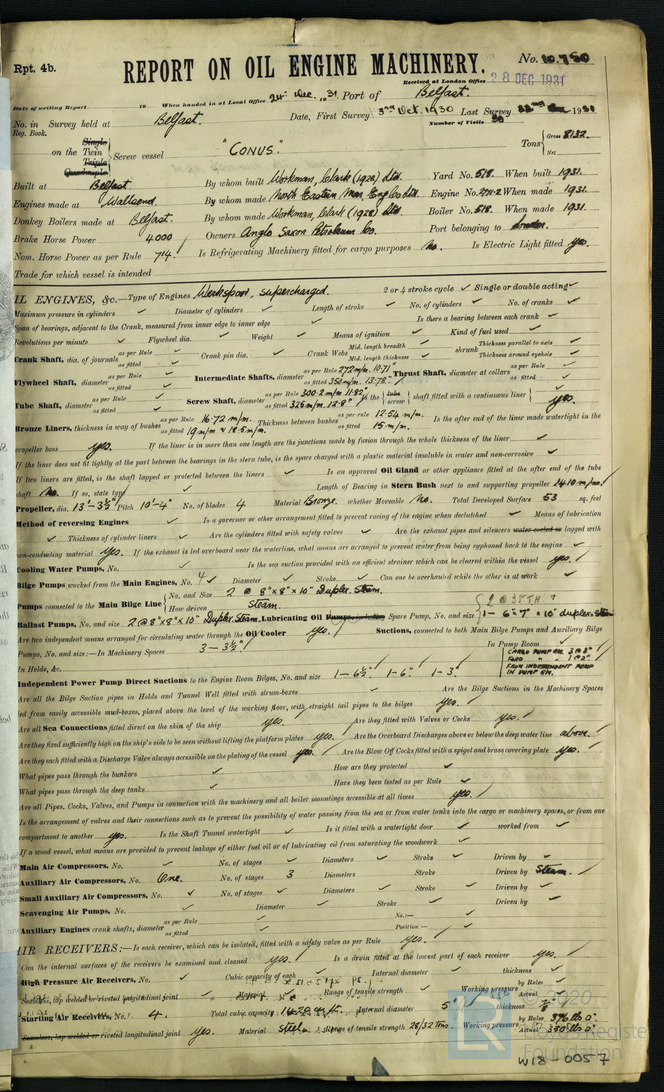 Rpt. 4b.
No. 10,750
REPORT ON OIL ENGINE MACHINERY.
Received at London Office 28 DEC 1931
Date of writing Report 19 When handed in at Local Office 24th Dec. 1931 Port of Belfast.
No. in Reg. Book. Survey held at Belfast. Date, First Survey 3rd Oct. 1930 Last Survey 1931
Number of Visits
on the Single Twin Triple Quadruple Screw vessel "CONUS." Tons Gross 8132. Net
Built at Belfast By whom built Workman, Clark (1928) Ltd. Yard No. 518. When built 1931.
Engines made at Wallsend. By whom made North Eastern Mar. Eng. Co. Ltd. Engine No. When made 1931.
Donkey Boilers made at Belfast. By whom made Workman, Clark (1928) Ltd. Boiler No. 518. When made 1931.
Brake Horse Power 4000 Owners Anglo Saxon Petroleum Co. Port belonging to London.
Nom. Horse Power as per Rule 714. Is Refrigerating Machinery fitted for cargo purposes No. Is Electric Light fitted yes.
Trade for which vessel is intended
OIL ENGINES, &c.—Type of Engines Werkspoor, supercharged. 2 or 4 stroke cycle ✓ Single or double acting ✓
Maximum pressure in cylinders ✓ Diameter of cylinders ✓ Length of stroke ✓ No. of cylinders ✓ No. of cranks ✓
Span of bearings, adjacent to the Crank, measured from inner edge to inner edge ✓ Is there a bearing between each crank ✓
Revolutions per minute ✓ Flywheel dia. ✓ Weight ✓ Means of ignition ✓ Kind of fuel used ✓
Crank Shaft, dia. of journals as per Rule as fitted ✓ Crank pin dia. ✓ Crank Webs Mid. length breadth ✓ Mid. length thickness ✓ shrunk Thickness parallel to axis ✓ Thickness around eyehole ✓
Flywheel Shaft, diameter as per Rule as fitted ✓ Intermediate Shafts, diameter as per Rule 272 m/m. 10.71 as fitted 350 m/m. 13.78" Thrust Shaft, diameter at collars as per Rule as fitted ✓
Tube Shaft, diameter as per Rule as fitted ✓ Screw Shaft, diameter as per Rule 300.2 m/m 11.82" as fitted 325 m/m. 12.8" Is the tube screw shaft fitted with a continuous liner yes.
Bronze Liners, thickness in way of bushes as per Rule 16.72 m/m. as fitted 19 m/m & 18.5 m/m. Thickness between bushes as per rule 12.54 m/m. as fitted 15 m/m. Is the after end of the liner made watertight in the
propeller boss yes. If the liner is in more than one length are the junctions made by fusion through the whole thickness of the liner ✓
If the liner does not fit tightly at the part between the bearings in the stern tube, is the space charged with a plastic material insoluble in water and non-corrosive ✓
If two liners are fitted, is the shaft lapped or protected between the liners ✓ Is an approved Oil Gland or other appliance fitted at the after end of the tube
shaft No. If so, state type Length of Bearing in Stern Bush next to and supporting propeller 1410 m/m.
Propeller, dia. 13'-3½" Pitch 10'-4" No. of blades 4 Material Bronze. whether Moveable No. Total Developed Surface 53 sq. feet
Method of reversing Engines ✓ Is a governor or other arrangement fitted to prevent racing of the engine when declutched ✓ Means of lubrication
✓ Thickness of cylinder liners ✓ Are the cylinders fitted with safety valves ✓ Are the exhaust pipes and silencers water cooled or lagged with
non-conducting material yes. If the exhaust is led overboard near the waterline, what means are arranged to prevent water from being syphoned back to the engine ✓
Cooling Water Pumps, No. ✓ Is the sea suction provided with an efficient strainer which can be cleared within the vessel yes.
Bilge Pumps worked from the Main Engines, No. ✓ Diameter ✓ Stroke ✓ Can one be overhauled while the other is at work ✓
Pumps connected to the Main Bilge Line No. and Size 2 @ 8" x 8" x 10" Duplex. Steam. How driven Steam.
Ballast Pumps, No. and size 2 @ 8" x 8" x 10" Duplex Steam. Lubricating Oil Pumps, including Spare Pump, No. and size 1 - 6" x 7" x 10" duplex. Steam
Are two independent means arranged for circulating water through the Oil Cooler yes. Suctions, connected to both Main Bilge Pumps and Auxiliary Bilge
Pumps, No. and size:—In Machinery Spaces 3 - 3½" In Pump Room ✓
In Holds, &c. CARGO PUMP RM. 3 @ 3" FORD " " 1 @ 2" FROM INDEPENDENT PUMP IN PUMP RM.
Independent Power Pump Direct Suctions to the Engine Room Bilges, No. and size 1 - 6½" 1 - 6" 1 - 3"
Are all the Bilge Suction pipes in Holds and Tunnel Well fitted with strum-boxes ✓ Are the Bilge Suctions in the Machinery Spaces
led from easily accessible mud-boxes, placed above the level of the working floor, with straight tail pipes to the bilges yes.
Are all Sea Connections fitted direct on the skin of the ship yes. Are they fitted with Valves or Cocks yes.
Are they fixed sufficiently high on the ship's side to be seen without lifting the platform plates yes. Are the Overboard Discharges above or below the deep water line above.
Are they each fitted with a Discharge Valve always accessible on the plating of the vessel yes. Are the Blow Off Cocks fitted with a spigot and brass covering plate yes.
What pipes pass through the bunkers ✓ How are they protected ✓
What pipes pass through the deep tanks ✓ Have they been tested as per Rule ✓
Are all Pipes, Cocks, Valves, and Pumps in connection with the machinery and all boiler mountings accessible at all times yes.
Is the arrangement of valves and their connections such as to prevent the possibility of water passing from the sea or from water tanks into the cargo or machinery spaces, or from one
compartment to another yes. Is the Shaft Tunnel watertight ✓ Is it fitted with a watertight door ✓ worked from ✓
If a wood vessel, what means are provided to prevent leakage of either fuel oil or of lubricating oil from saturating the woodwork ✓
Main Air Compressors, No. ✓ No. of stages ✓ Diameters ✓ Stroke ✓ Driven by ✓
Auxiliary Air Compressors, No. One. No. of stages 3 Diameters ✓ Stroke ✓ Driven by Steam.
Small Auxiliary Air Compressors, No. ✓ No. of stages ✓ Diameters ✓ Stroke ✓ Driven by ✓
Scavenging Air Pumps, No. ✓ Diameter ✓ Stroke ✓ Driven by ✓
Auxiliary Engines crank shafts, diameter as per Rule as fitted ✓ No.— Position —
AIR RECEIVERS:—Is each receiver, which can be isolated, fitted with a safety valve as per Rule yes.
Can the internal surfaces of the receivers be examined and cleaned yes. Is a drain fitted at the lowest part of each receiver yes.
High Pressure Air Receivers, No. ✓ Cubic capacity of each Internal diameter ✓ thickness ✓
Seamless, lap welded or riveted longitudinal joint ✓ Material Range of tensile strength ✓ Working pressure by Rules Actual
Starting Air Receivers, No. 4. Total cubic capacity Internal diameter 5' thickness
Seamless, lap welded or riveted longitudinal joint yes. Material Steel. Range of tensile strength 28/32 tons Working pressure by Rules 376 lb □" Actual 350 lb □"
© 2020
LR
Lloyd's Register
Foundation
W18-0057